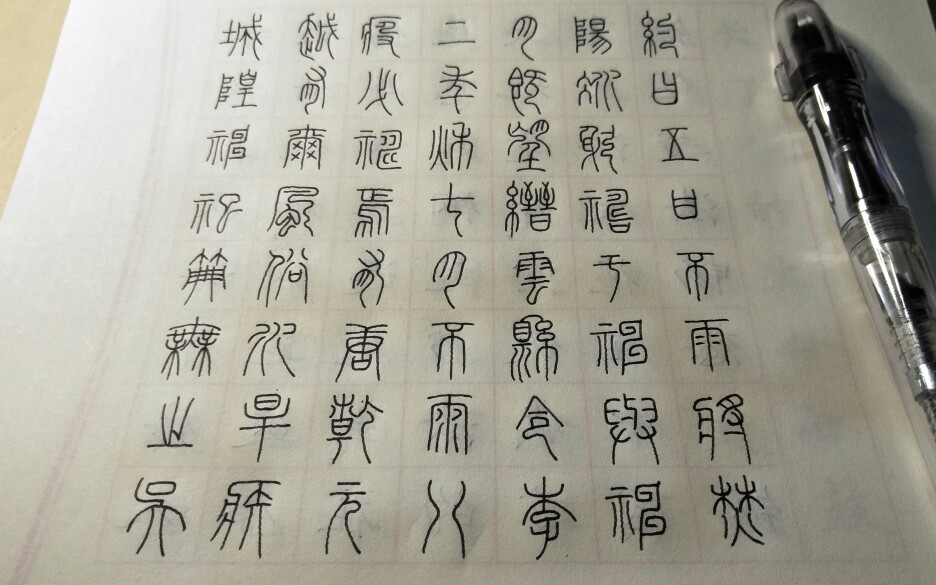 城隍神祀典無之吳
越有爾風俗水旱疾
疫必禱焉有唐乾元
二年秋七月不雨八
月既望縉雲縣令李
陽冰躬禱于神與神
約曰五日不雨將焚